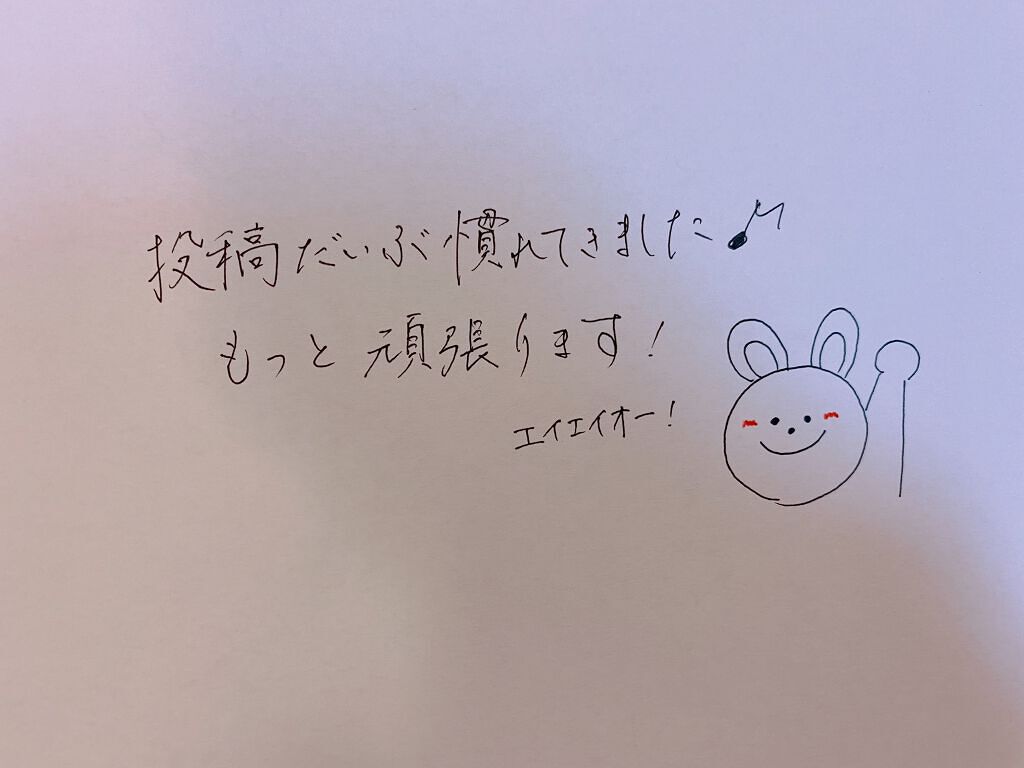 投稿だいぶ慣れてきました♪
もっと頑張ります！
エイエイオー！